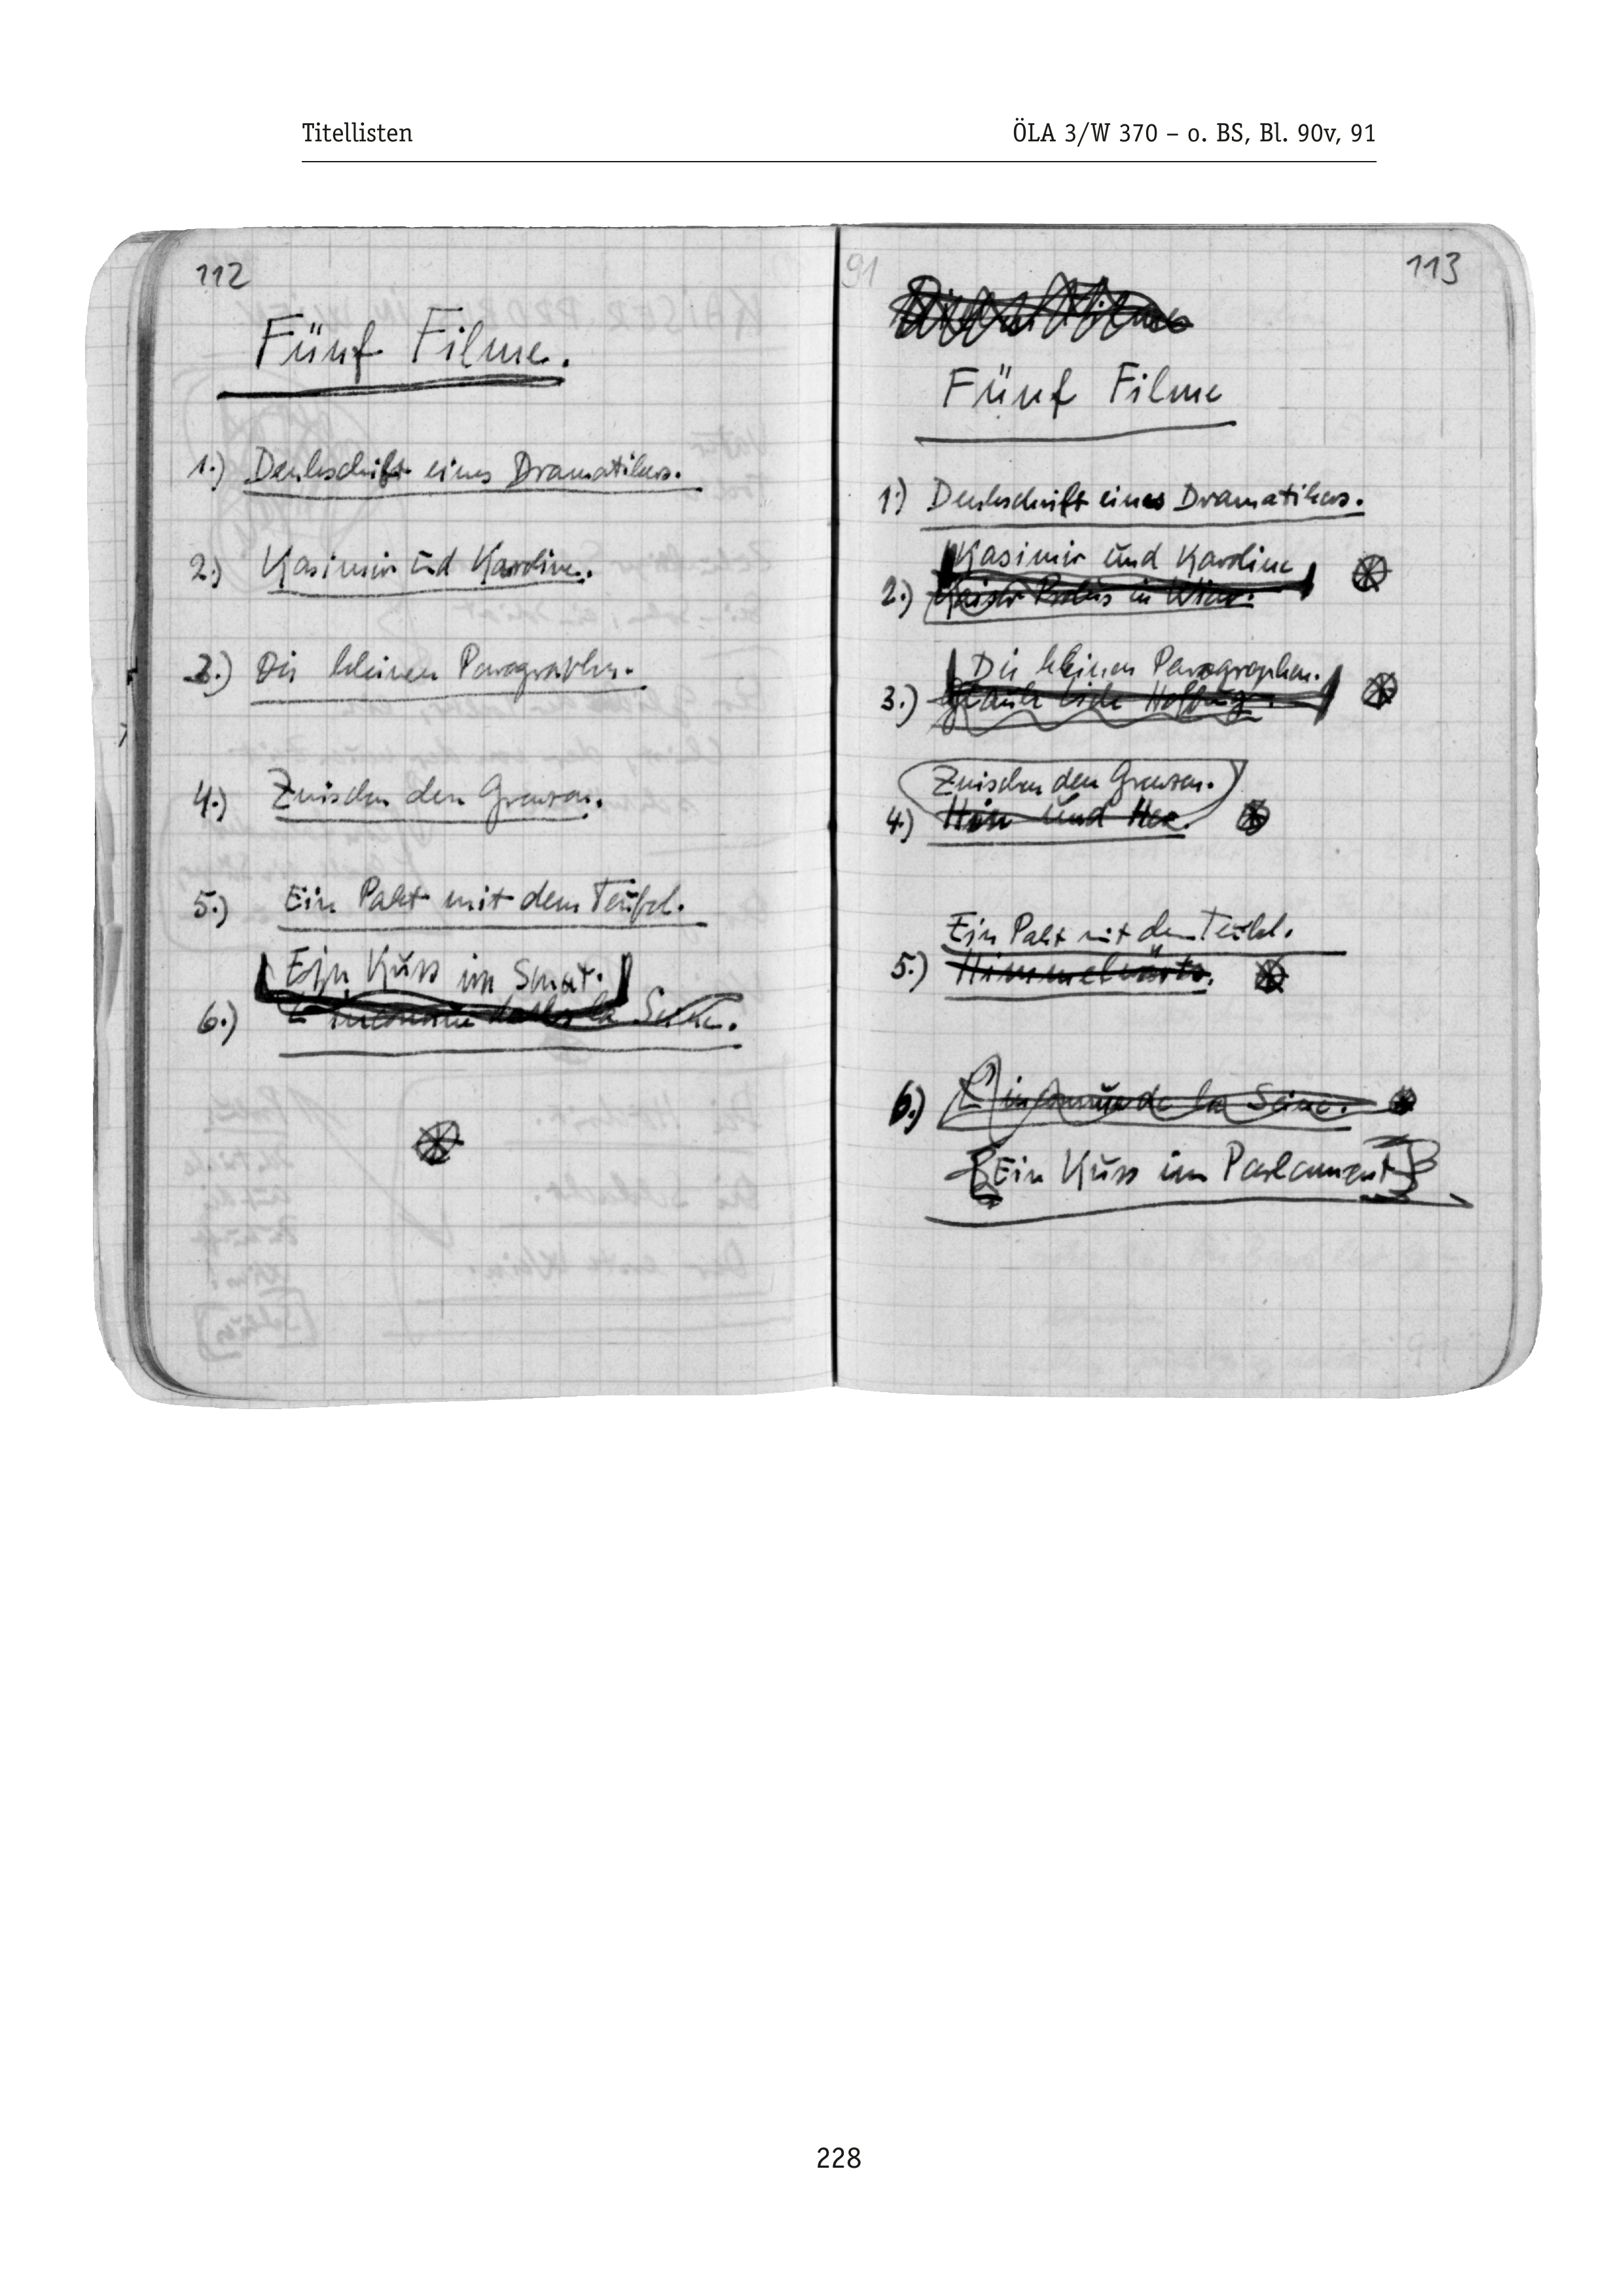 Titellisten
ÖLA 3/W 370 – o. BS, Bl. 90v, 91
112
Fünf Filme.
1.) Denkschrift eines Dramatikers.
2.) Kasimir und Karoline.
3.) Die kleinen Paragraphen.
4.) Zwischen den Grenzen.
5.) Ein Pakt mit dem Teufel.
Ein Kuss im Senat.
6.) la Seine.
91
113
Fünf Filme
1.) Denkschrift eines Dramatikers.
Kasimir und Karoline
2.) Kaiser Probus in Wien.
Die kleinen Paragraphen.
3.) Glaube Liebe Hoffnung.
Zwischen den Grenzen.
4.) Hin und Her.
Ein Pakt mit dem Teufel.
5.) Himmelwärts.
6.) L'inconnue de la Seine.
Ein Kuss im Parlament
228